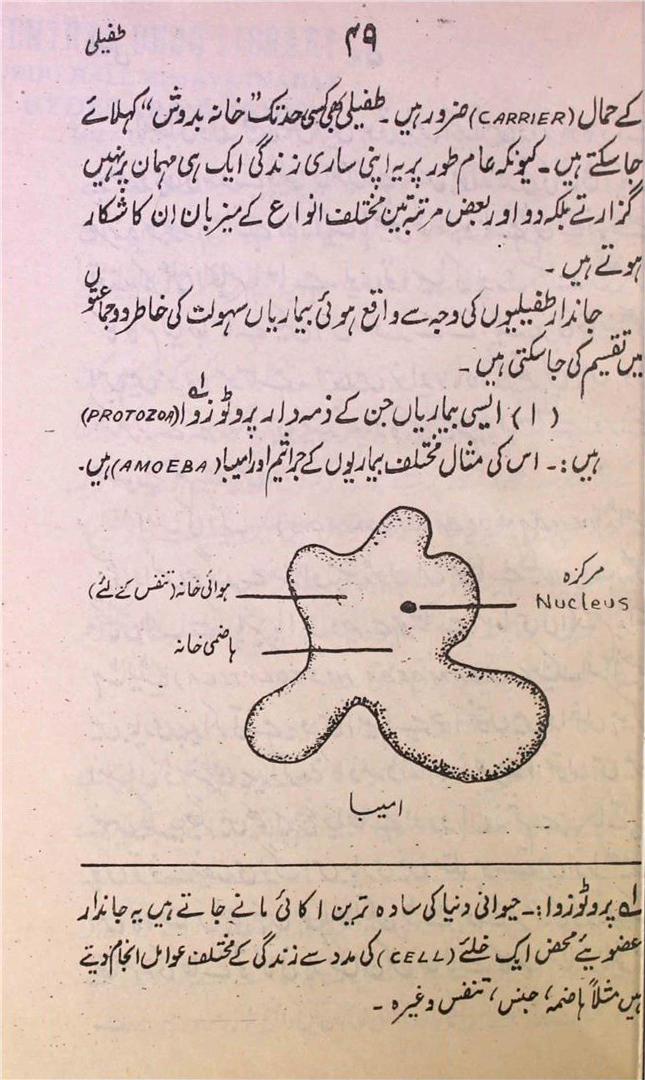 ۴۹
طفیلی
کے حمال (CARRIER) ضرور ہیں۔ طفیلی بھی کسی حد تک "خانہ بدوش" کہلائے
جاسکتے ہیں۔ کیونکہ عام طور پر یہ اپنی ساری زندگی ایک ہی مہمان پر نہیں
گزارتے بلکہ دو اور بعض مرتبہ تین مختلف انواع کے میزبان ان کا شکار
ہوتے ہیں۔
جاندار طفیلیوں کی وجہ سے واقع ہوئی بیماریاں سہولت کی خاطر دو جماعتوں
میں تقسیم کی جاسکتی ہیں۔
(۱) ایسی بیماریاں جن کے ذمہ دار پروٹوزوا لے (PROTOZOA)
ہیں:۔ اس کی مثال مختلف بیماریوں کے جراثیم اور امیبا (AMOEBA) ہیں۔
مرکزہ
Nucleus
ہوائی خانہ (تنفس کے لئے)
ہاضمی خانہ
امیبا
لے پروٹوزوا:۔ حیوانی دنیا کی سادہ ترین اکائی مانے جاتے ہیں یہ جاندار
عضویئے محض ایک خلئے (CELL) کی مدد سے زندگی کے مختلف عوامل انجام دیتے
ہیں مثلاً ہاضمہ، جنس، تنفس وغیرہ۔